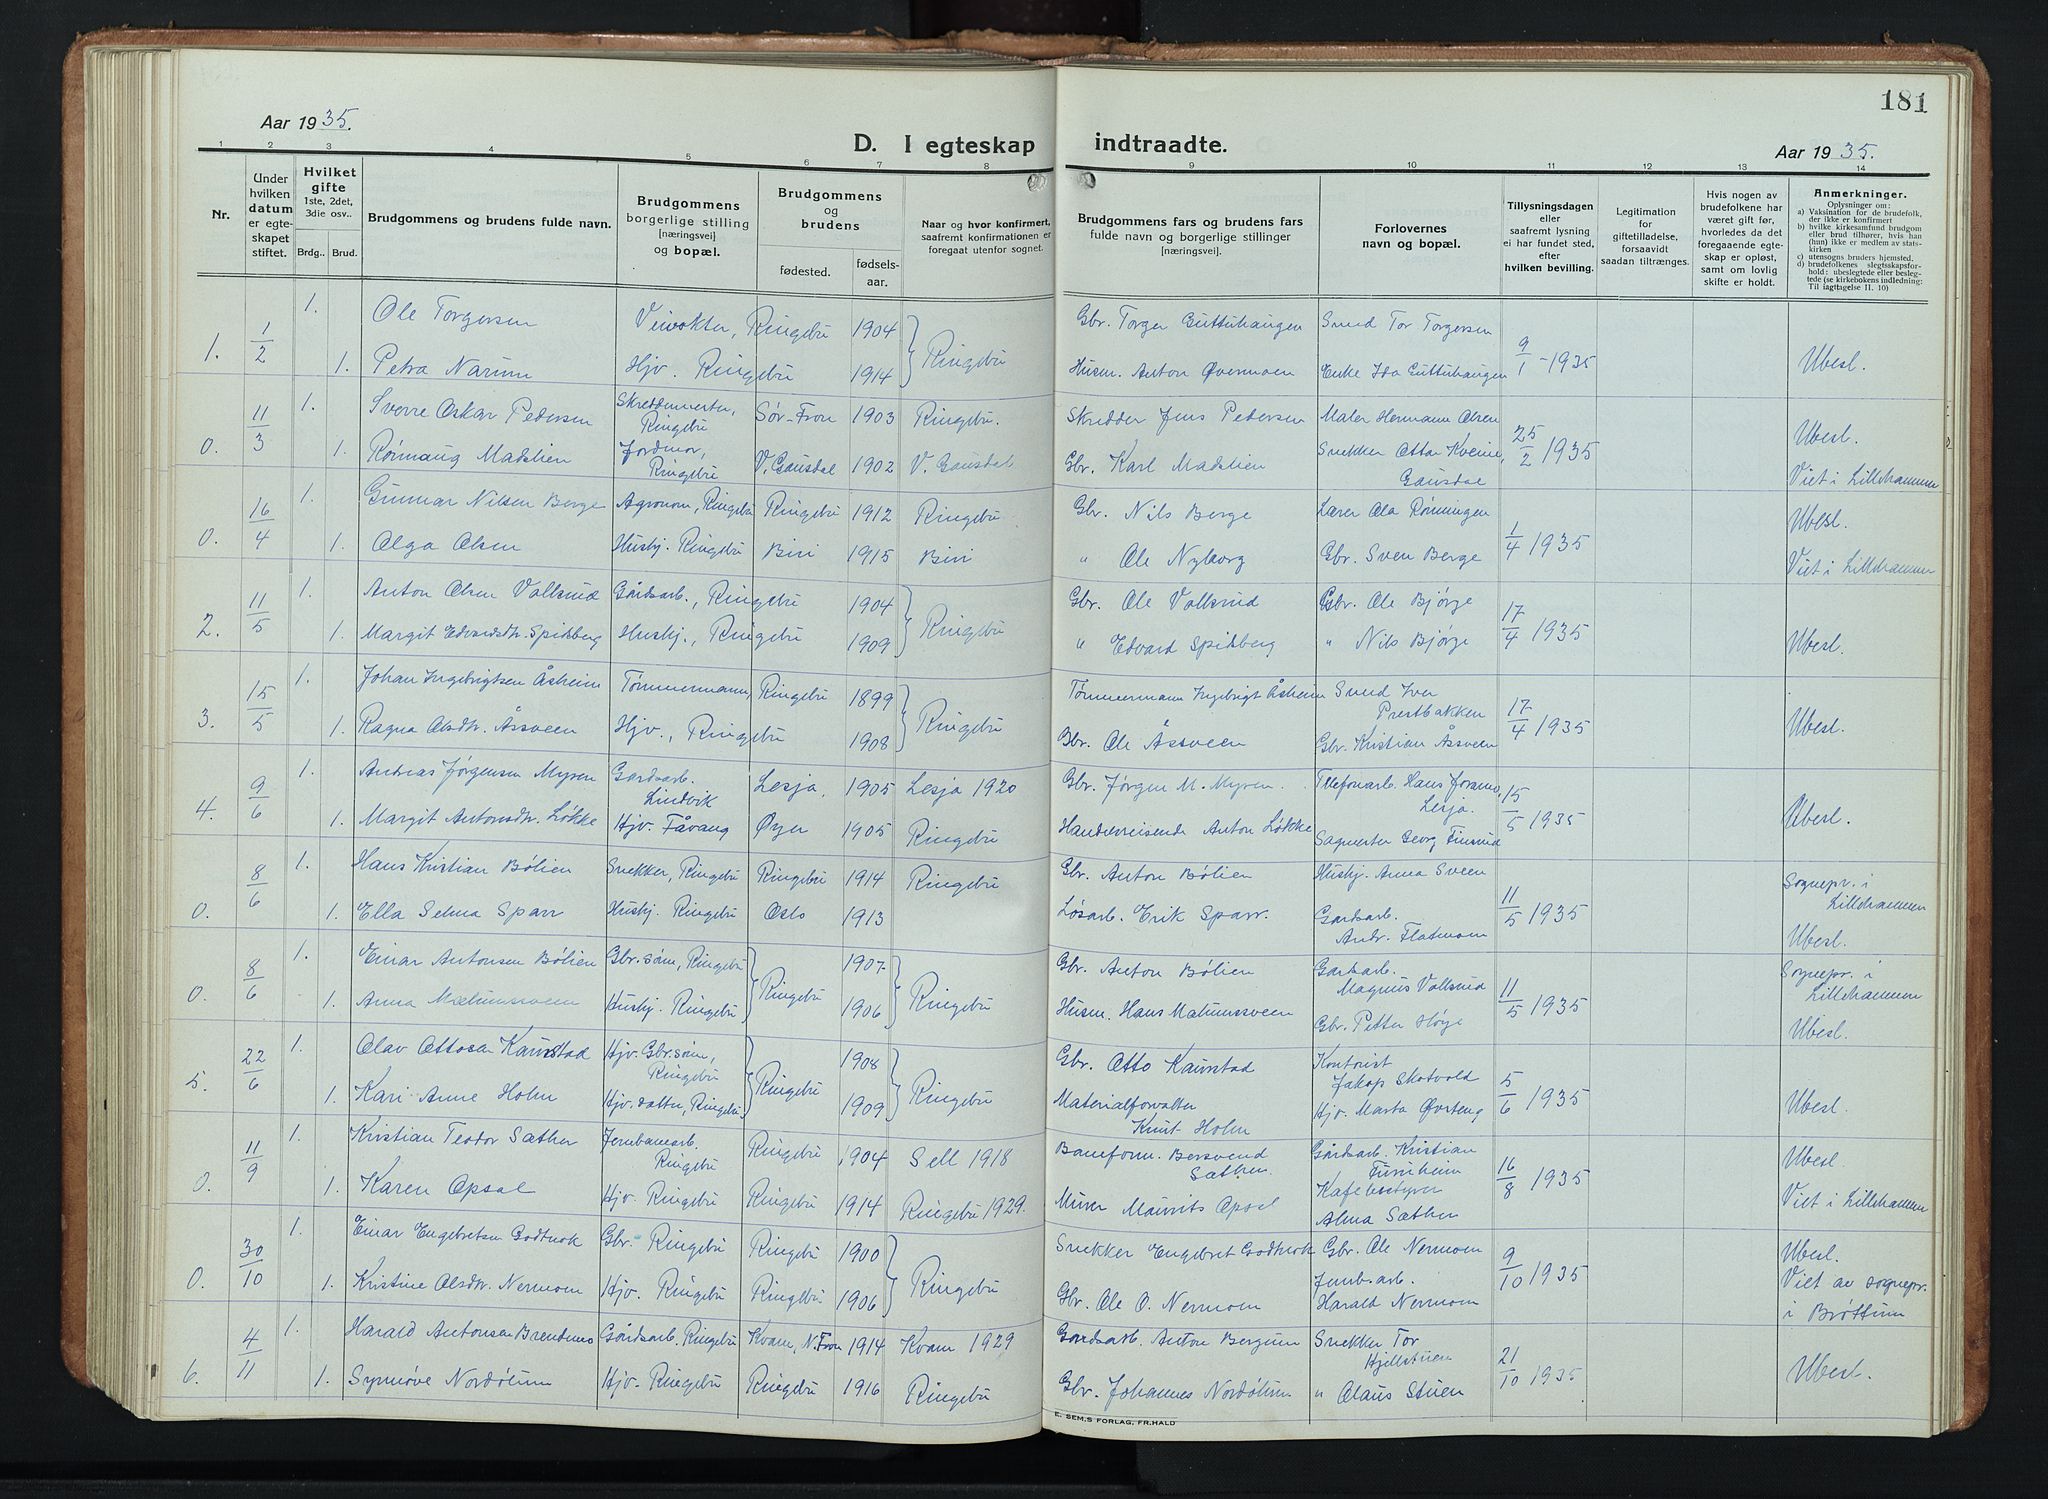 181
Aar 1935.
D. I egteskap indtraadte.
Aar 1935.
1 2 3 4 5 6 7 8 9 10 11 12 13 14
Nr.
Under
hvilken
datum
er egte-
skapet
stiftet.
Hvilket
gifte
1ste, 2det,
3die osv..
Brdg.. Brud.
Brudgommens og brudens fulde navn.
Brudgommens
borgerlige stilling
[næringsvei]
og bopæl.
Brudgommens
og
brudens
fødested.
fødsels-
aar.
Naar og hvor konfirmert,
saafremt konfirmationen er
foregaat utenfor sognet.
Brudgommens fars og brudens fars
fulde navn og borgerlige stillinger
[næringsvei].
Forlovernes
navn og bopæl.
Tillysningsdagen
eller
saafremt lysning
ei har fundet sted,
efter
hvilken bevilling.
Legitimation
for
giftetilladelse,
forsaavidt
saadan tiltrænges.
Hvis nogen av
brudefolkene har
været gift før,
hvorledes da det
foregaaende egte-
skap er opløst,
samt om lovlig
skifte er holdt.
Anmerkninger.
Oplysninger om:
a) Vaksination for de brudefolk,
der ikke er konfirmert
b) hvilke kirkesamfund brudgom
eller brud tilhører, hvis han
(hun) ikke er medlem av stats-
kirken
c) utensogns bruders hjemsted.
d) brudefolkenes slegtsskapsfor-
hold: ubeslegtede eller besleg-
tede (se kirkebokens indledning:
Til iagttagelse II. 10)
1. 1/2 1. Ole Torgersen Veivokter, Ringebu 1904 Ringebu Gbr. Torger Guttuhaugen Snved Tor Torgersen 9/1-1935 Ubesl.
1. Petra Narum Hjv. Ringebu 1914 Husm. Anton Øvermoen Enke Ida Guttuhaugen
0. 11/3 1. Sverre Oskar Pedersen Skreddermester, Ringebu Sør-Fron 1903 Ringebu. Skredder Jens Pedersen Maler Hermann Olsen 25/2 1935 Ubesl.
1. Rønnaug Madslien Jordmor, Ringebu V. Gausdal 1902 V. Gausdal Gbr. Karl Madslien Snekker Ottar Kveine, Gausdal Viet i Lillehammer
0. 16/4 1. Gunnar Nilsen Berge Agronom, Ringebu Ringebu 1912 Ringebu Gbr. Nils Berge Lærer Ola Rønningen 1/4 1935 Ubesl.
1. Olga Olsen Hushj. Ringebu Biri 1915 Biri " Ole Nyborg Gbr. Sven Berge Viet i Lillehammer
2. 11/5 1. Anton Olsen Vollsrud Gårdsarb., Ringebu 1904 Ringebu Gbr. Ole Vollsrud Gbr. Ole Bjørge 17/4 1935 Ubesl.
1. Margit Edvardsdtr. Spidsberg Hushj., Ringebu 1909 " Edvard Spidsberg " Nils Bjørge
3. 15/5 1. Johan Ingebrigtsen Åsheim Tømmermann, Ringebu 1899 Ringebu Tømmermann Ingebrigt Åsheim Smed Iver Prestbakken 17/4 1935 Ubesl.
1. Ragna Olsdtr. Åssveen Hjv., Ringebu 1908 Gbr. Ole Åssveen Gbr. Kristian Åssveen
4. 9/6 1. Andreas Jørgensen Myren Gårdsarb. Lindvik Lesja, 1905 Lesja 1920 Gbr. Jørgen M. Myren. Telefonarb. Hans Joramo, Lesja. 15/5 1935 Ubesl.
1. Margit Antonsdtr. Løkke Hjv. Fåvang Øyer 1905 Ringebu Handelsreisende Anton Løkke Sagmester Georg Finsrud
0. 8/6 1. Hans Kristian Bølien Snekker, Ringebu Ringebu 1914 Ringebu Gbr. Anton Bølien Hushj. Anna Sveen 11/5 1935 Sognepr. i Lillehammer
1. Ella Selma Sparr Hushj. Ringebu Oslo 1913 Løsarb. Erik Sparr. Gårdsarb. Andr. Flatmoen Ubesl.
0. 8/6 1. Einar Antonsen Bølien Gbr.sønn, Ringebu Ringebu 1907 Ringebu Gbr. Anton Bølien Gårdsarb. Magnus Vollsrud 11/5 1935 Sognepr. i Lillehammer
1. Anna Mælumssveen Hushj. Ringebu 1906 Husm. Hans Mælumssveen Gbr. Petter Høge Ubesl.
5. 22/6 1. Olav Ottosen Kaurstad Hjv. Gbr.sønn, Ringebu Ringebu 1908 Ringebu Gbr. Otto Kaurstad Kontorist Jakop Skotvold 5/6 1935 Ubesl.
1. Kari Anne Holm Hjv. datter, Ringebu. 1909 Materialforvalter Knut Holm Hjv. Marta Øvsteng
0. 11/9 1. Kristian Teodor Sæther Jernbanearb. Ringebu Ringebu 1904 Sell 1918 Baneform. Bersvend Sæther. Gårdsarb. Kristian Furuheim 16/8 1935 Ubesl.
1. Karen Opsal Hjv. Ringebu Ringebu 1914 Ringebu 1929. Murer Maurits Opsal Kafebestyrer Alma Sæther Viet i Lillehammer
0. 30/10 1. Einar Engebretsen Godtnok Gbr. Ringebu Ringebu 1900 Ringebu Snekker Engebret Godtnok Gbr. Ole Nermoen 9/10 1935 Ubesl.
1. Kristine Olsdtr. Nermoen Hjv. Ringebu Ringebu 1906 Gbr. Ole O. Nermoen Jernb.arb. Harald Nermoen Viet av sognepr. i Brøttum
6. 4/11 1. Harald Antonsen Brendmo Gårdsarb. Ringebu Kvam, N. Fron 1914 Kvam 1929 Gårdsarb. Anton Bergum Snekker Tor Hjellstuen 21/10 1935 Ubesl.
1. Synnøve Nordølum Hjv. Ringebu Ringebu 1916 Ringebu Gbr. Johannes Nordølum " Olaus Stuen
E. SEM,S FORLAG, FR.HALD